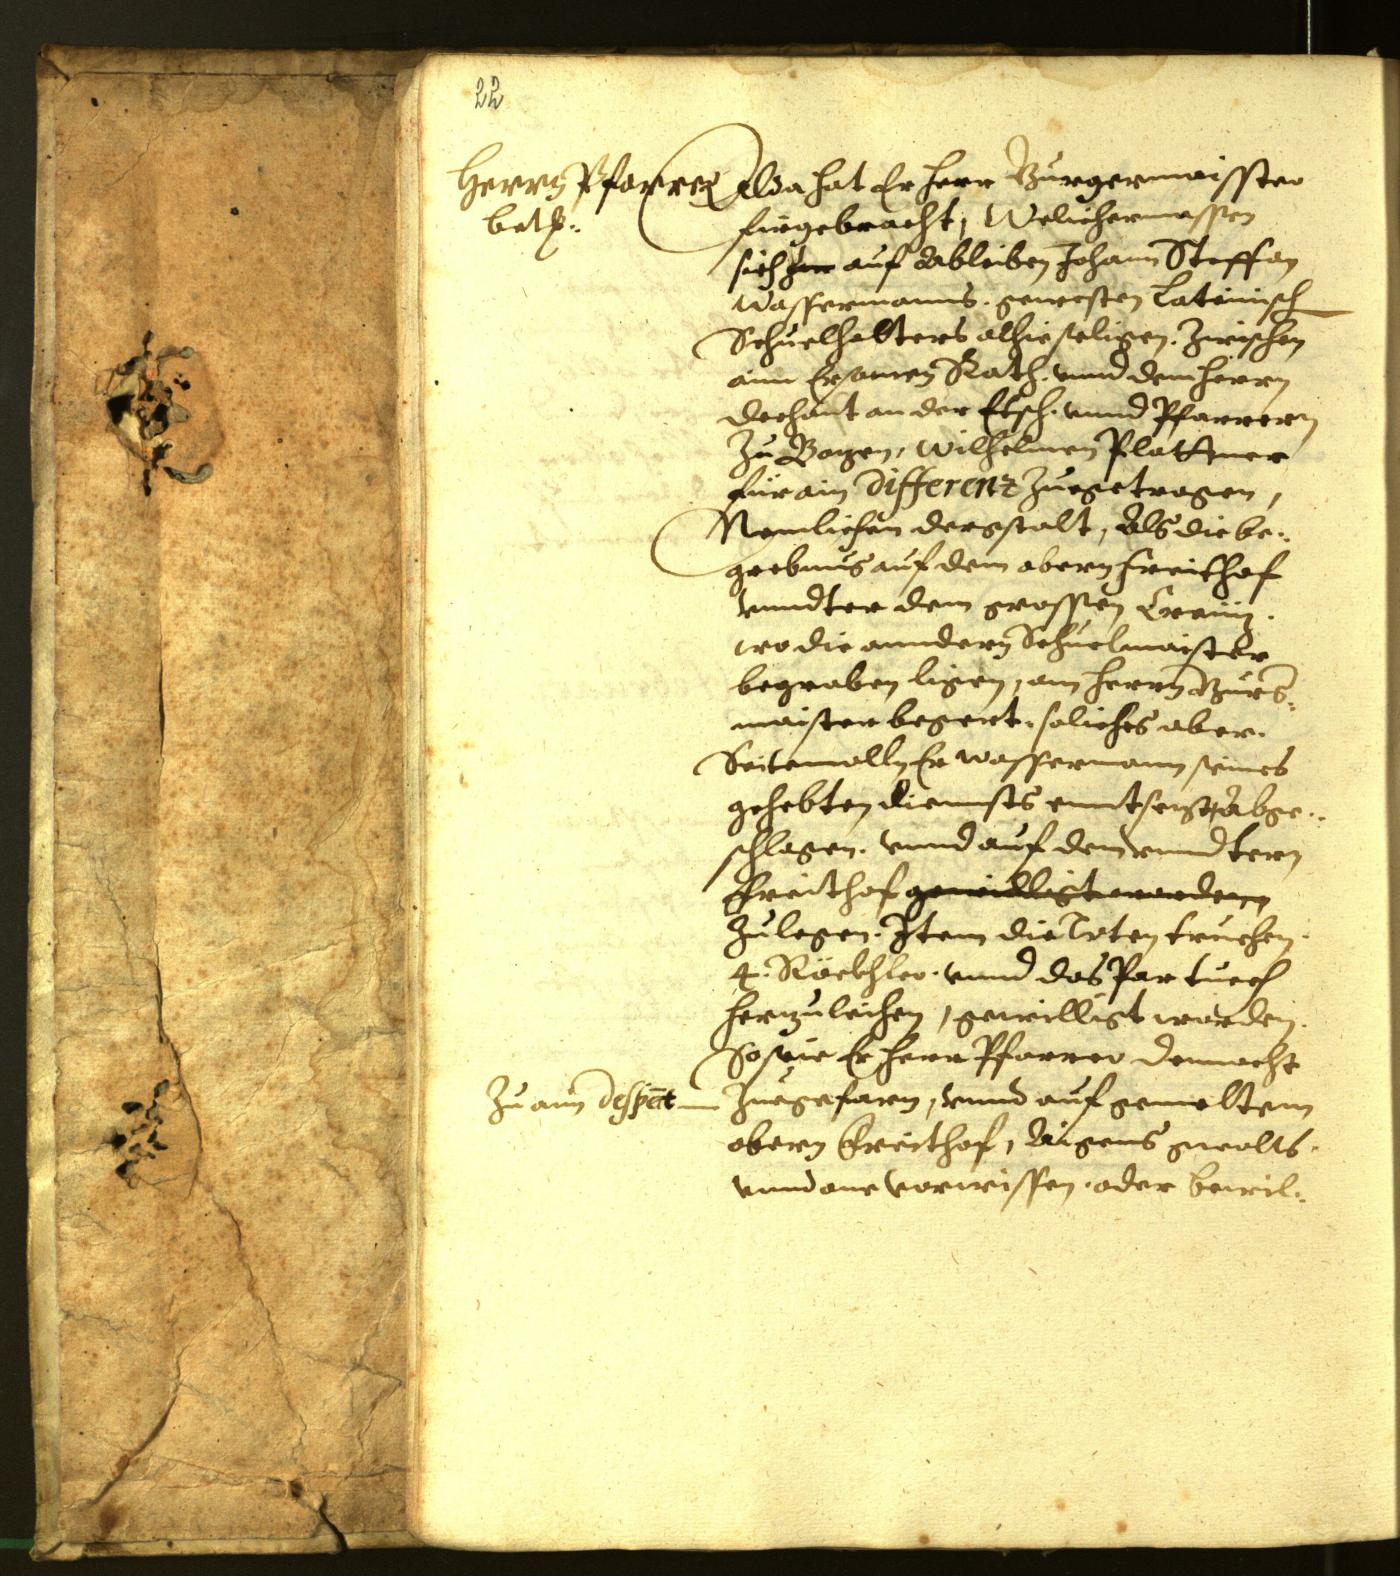 22
Herrn Pfarrer
betr:
Alda hat Er Herr Burgermaister
firgebracht, Welichermassen
sich auf ableiben Johann Steffan
Wassermanns. gewesten Lateinisch
Schuelhalters alhie seligen. Zwischen
ainn Ersamen Rath. vnnd dem Herrn
Dechant an der Etsch. vnnd Pfarrern
Zu Bozen, Wilhelmen Plattner
für ain Differenz Zuegetragen,
Nemlichen dergstalt, Als die be:
grebnus auf dem obern Freithof
vnndter dem grossen Creüz.
wo die anndern Schuelmaister
begraben ligen, am Herrn Burg:
maister begert. soliches aber.
Seitemalln Er Wassermann seines
gehebten diennsts enntsezt, Abge:
schlagen. vnnd auf den vnndtern
Freithof gewilligt worden
Zulegen. Item die Toten truchen.
4. Khler. vnnd das Par tuech
herzuleihen, gewilligt worden.
So seie Er Herr Pfarrer demnach
Zu ain despect
Zuegefarn, vnnd auf gemeltem
obern Freithof, Aigens gwalts.
vnnd ane vorwissen. oder bewil: